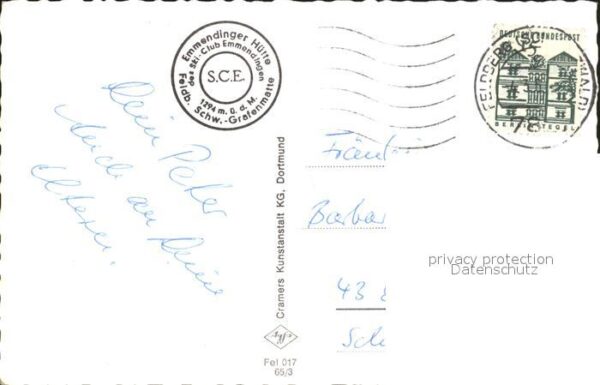 Emmendinger Hütte
des Ski-Club Emmendingen
S.C.E.
1294 m. ü. d. M.
Feldb. Schw.-Grafenmatte
DEUTSCHE BUNDESPOST
FELDBERG (SCHWARZWALD)
78
BERLIN TEGEL
Dein Peter
Auch an Deine
Eltern.
Cramers Kunstanstalt KG, Dortmund
Agfa
Fel 017
65/3
Fräul
Barbar
43
Sch
privacy protection
Datenschutz